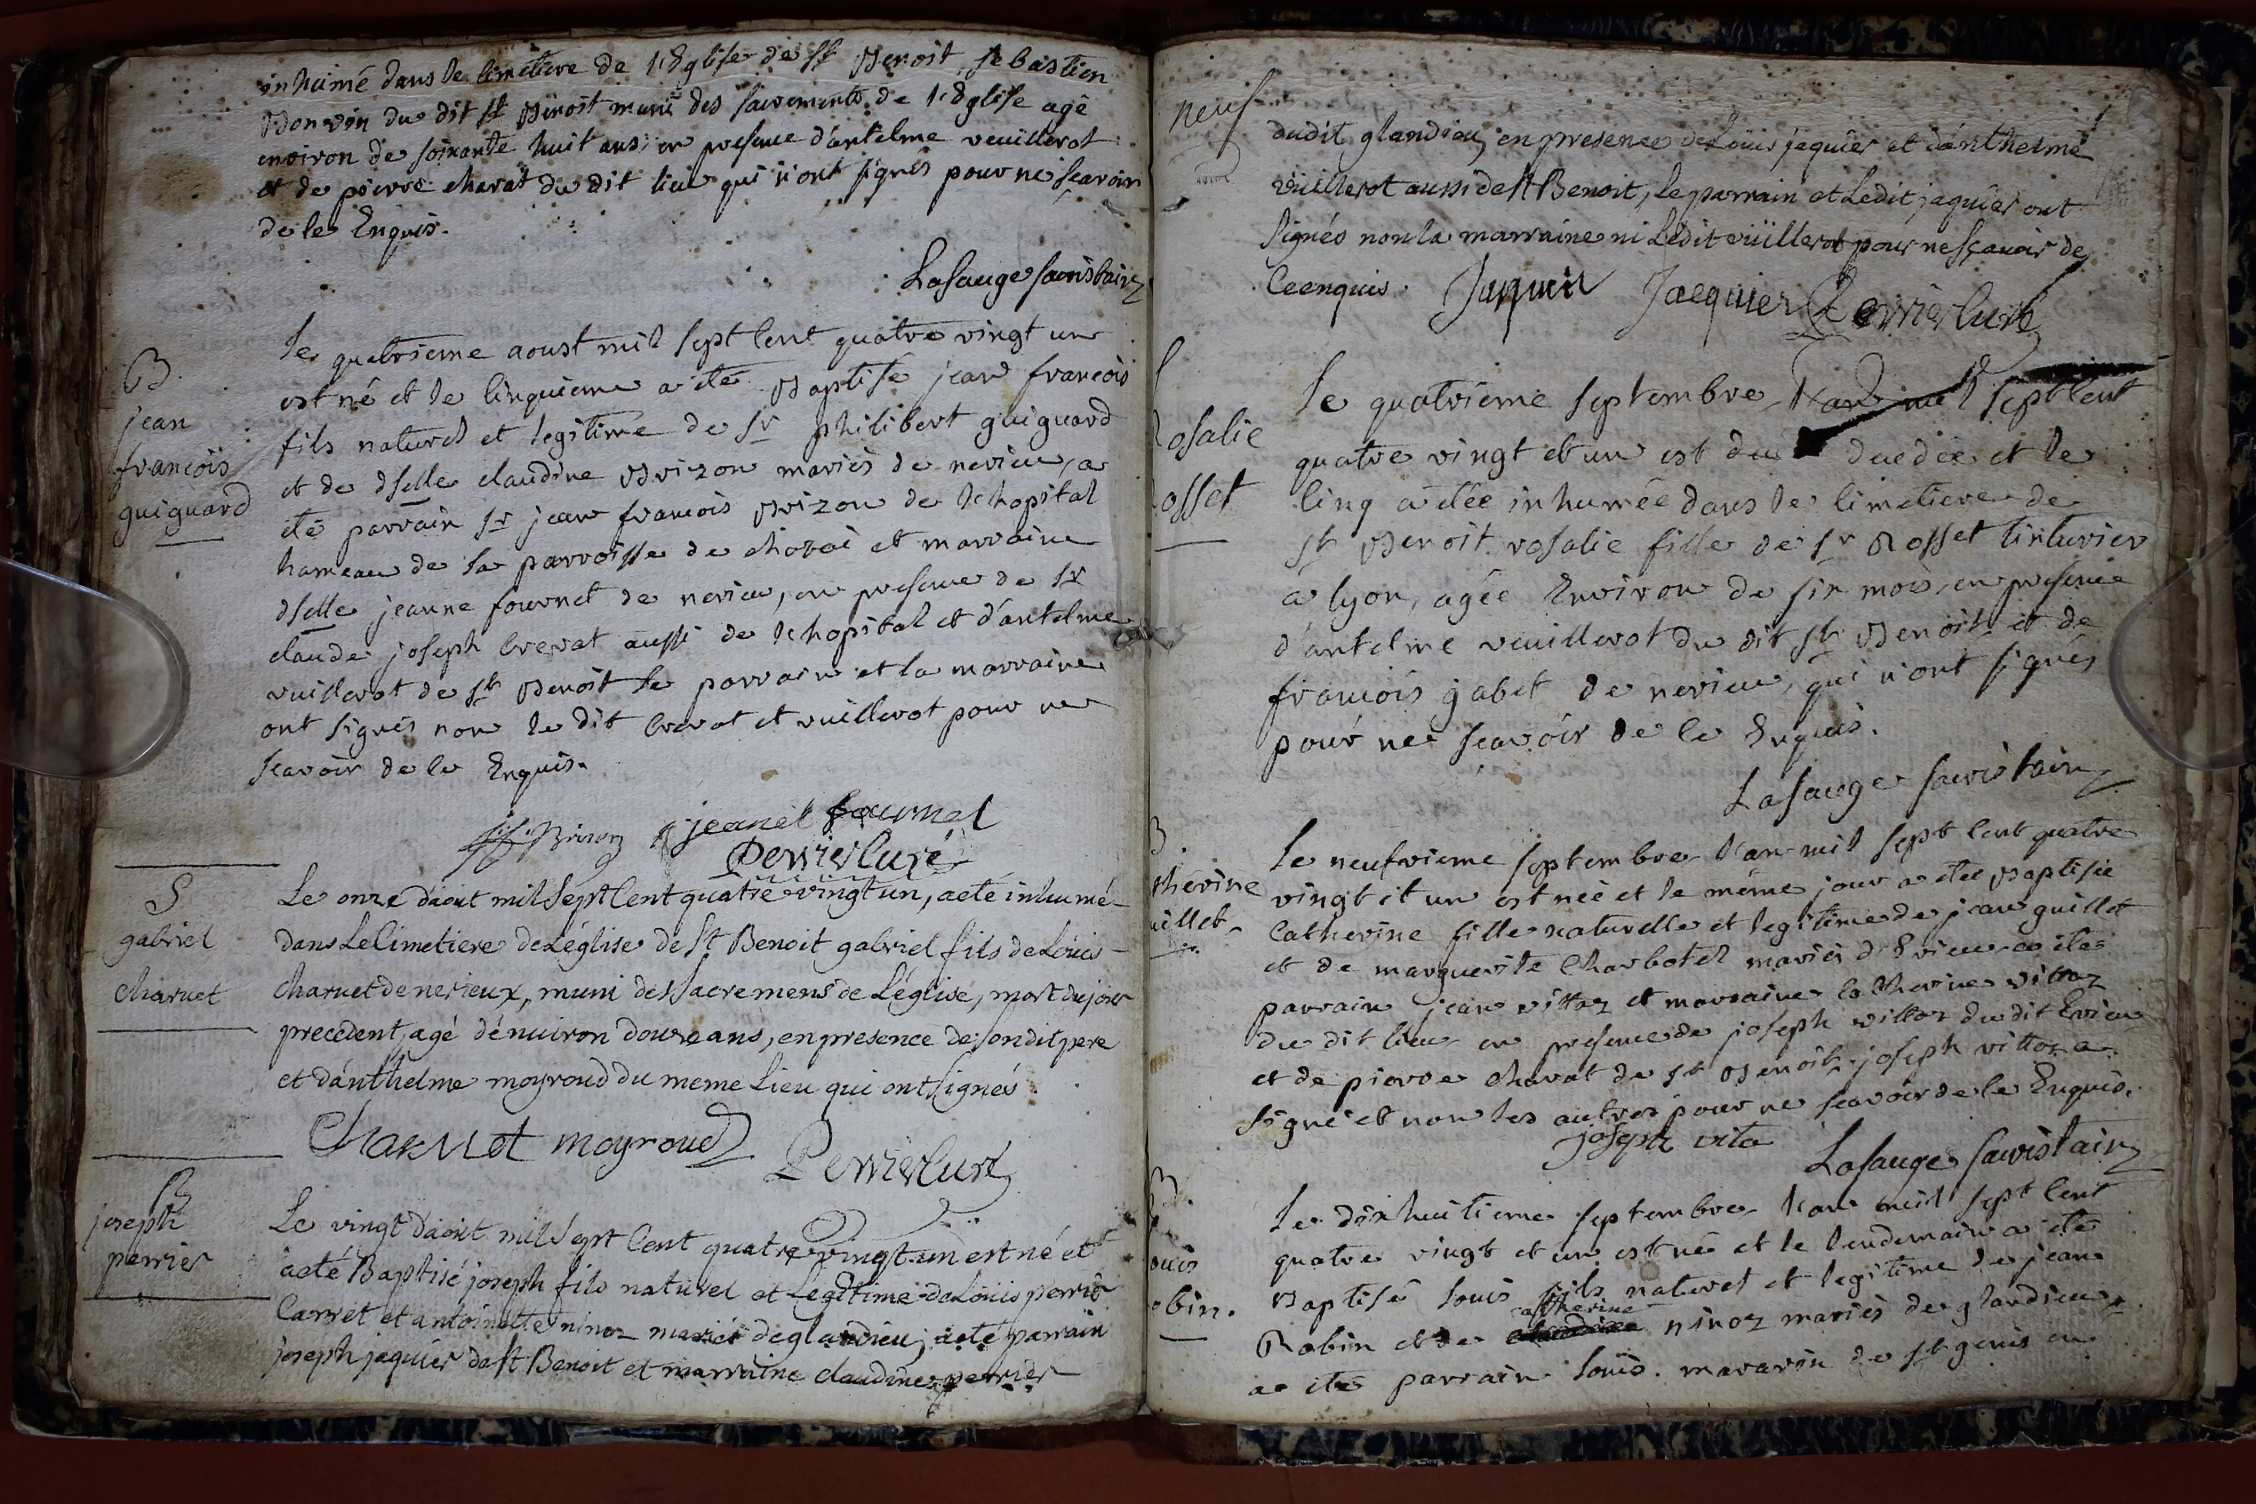 inhumé dans le cimetiere de l'Eglise de St Benoit, sebastien
Bonvin du dit St Benoit muni des sacrements de l'Eglise agé
environ de soixante huit ans, en presence d'antelme veuillerot
et de pierre charat du dit lieu qui n'ont signés pour ne scavoir
de ce Enquis.
Lasauge sacristain
B
jean
francois
guiguard
le quatrieme aoust mil sept cent quatre vingt un
est né et le cinquieme a été Baptisé jean francois
fils naturel et legitime de Sr philibert guiguard
et de dselle claudine Brizon mariés de nerieu, a
été parrain Sr jean francois Brizon de lhopital
hameau de la parroisse de et marraine
dselle jeanne fournet de nerieu, en presence de Sr
claude joseph crevat aussi de lhopital et d'antelme
vuillerot de St Benoit le parrain et la marraine
ont signés non le dit crevat et vuillerot pour ne
scavoir de ce Enquis.
Brison jeanet fournet
Perrier curé
S
gabriel
charvet
Le onze daout mil sept Cent quatre vingt un, a eté inhumé
dans Le Cimetiere de L'église de St Benoit gabriel fils de Louis
charvet de nerieux, muni des Sacremens de L'église, mort du jour
precedent, agé dénuiron douze ans, en presence de son dit pere
et dánthelme moyroud du meme Lieu qui ont Signés
Charvet moyroud Perrier curé
B
joseph
perrier
Le vingt daout mil Sept Cent quatre vingt un est né et
a eté Baptisé joseph fils naturel et Legitime de Louis perrier
Carret et antoinette ninoz mariés de glandieu, a eté parrain
joseph jaquier de St Benoit et marraine claudine perrier
neuf
dudit glandieu, en presence de Louis jaquier et dánthelme
vüillerot aussi de St Benoit, Le parrain et Ledit jaquier ont
Signés non la marraine ni Ledit vüillerot pour ne sçavoir de
Ce enquis. Jaquier Jacquier Perrier curé
Rosalie
rosset
le quatrieme septembre l'an mil sept cent
quatre vingt et un est decedée et le
cinq a étée inhumée dans le cimetiere de
St Benoit rosalie fille de Sr Rosset tinturier
a lyon, agée Environ de six mois, en presence
d'antelme veuillerot du dit St Benoit et de
francois gabet de nerieu, qui n'ont signés
pour ne scavoir de ce Enquis.
Lasauge sacristain
B
therine
uillet
le neufvieme septembre l'an mil sept cent quatre
vingt et un est neé et le même jour a étée Baptisée
Catherine fille naturelle et legitime de jean guillet
et de marguerite Charbotel mariés d'Evieu a été
parrain jean vittoz et marraine catherine vittoz
du dit lieu en presence de joseph vittoz du dit Evieu
et de pierre charat de St Benoit, joseph vittoz a
signé et non les autres pour ne scavoir de ce Enquis.
joseph vita Lasauge sacristain
B
ouis
obin.
le dixhuitieme septembre l'an mil sept cent
quatre vingt et un est né et le lendemain a été
Baptisé louis fils naturel et legitime de jean
Robin et de catherine ninoz mariés de glandieu
a été parrain louis maravin de St genis en